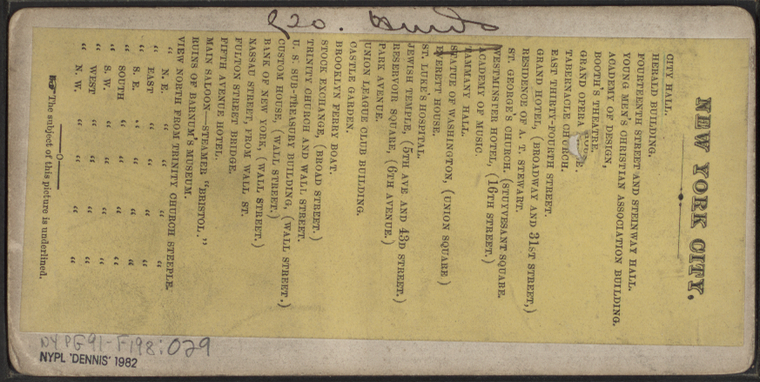 NEW YORK CITY.
CITY HALL.
HERALD BUILDING.
FOURTEENTH STREET AND STEINWAY HALL.
YOUNG MEN'S CHRISTIAN ASSOCIATION BUILDING.
ACADEMY OF DESIGN,
BOOTH'S THEATRE.
GRAND OPERA
TABERNACLE CHURCH.
EAST THIRTY-FOURTH STREET.
GRAND HOTEL, (BROADWAY AND 31ST STREET,)
RESIDENCE OF A. T. STEWART.
ST. GEORGE'S CHURCH. (STUYVESANT SQUARE.
WESTMINSTER HOTEL, (16TH STREET.)
ACADEMY OF MUSIC.
TAMMANY HALL.
STATUE OF WASHINGTON, (UNION SQUARE)
EVERETT HOUSE.
ST. LUKE'S HOSPITAL.
JEWISH TEMPLE, (5TH AVE AND 43D STREET.)
RESERVOIR SQUARE, (6TH AVENUE.)
PARK AVENUE.
UNION LEAGUE CLUB BUILDING.
CASTLE GARDEN.
BROOKLYN FERRY BOAT.
STOCK EXCHANGE, (BROAD STREET.)
TRINITY CHURCH AND WALL STREET.
U. S. SUB-TREASURY BUILDING, (WALL STREET,)
CUSTOM HOUSE, (WALL STREET.)
BANK OF NEW YORK, (WALL STREET.)
NASSAU STREET, FROM WALL ST.
FULTON STREET BRIDGE.
FIFTH AVENUE HOTEL.
MAIN SALOON—STEAMER "BRISTOL."
RUINS OF BARNUM'S MUSEUM.
VIEW NORTH FROM TRINITY CHURCH STEEPLE.
" N. E. " " " "
" EAST " " " "
" S. E. " " " "
" SOUTH " " " "
" S. W. " " " "
" WEST " " " "
" N. W. " " " "
☞ The subject of this picture is underlined.
NYPG91-F198:029
NYPL 'DENNIS' 1982